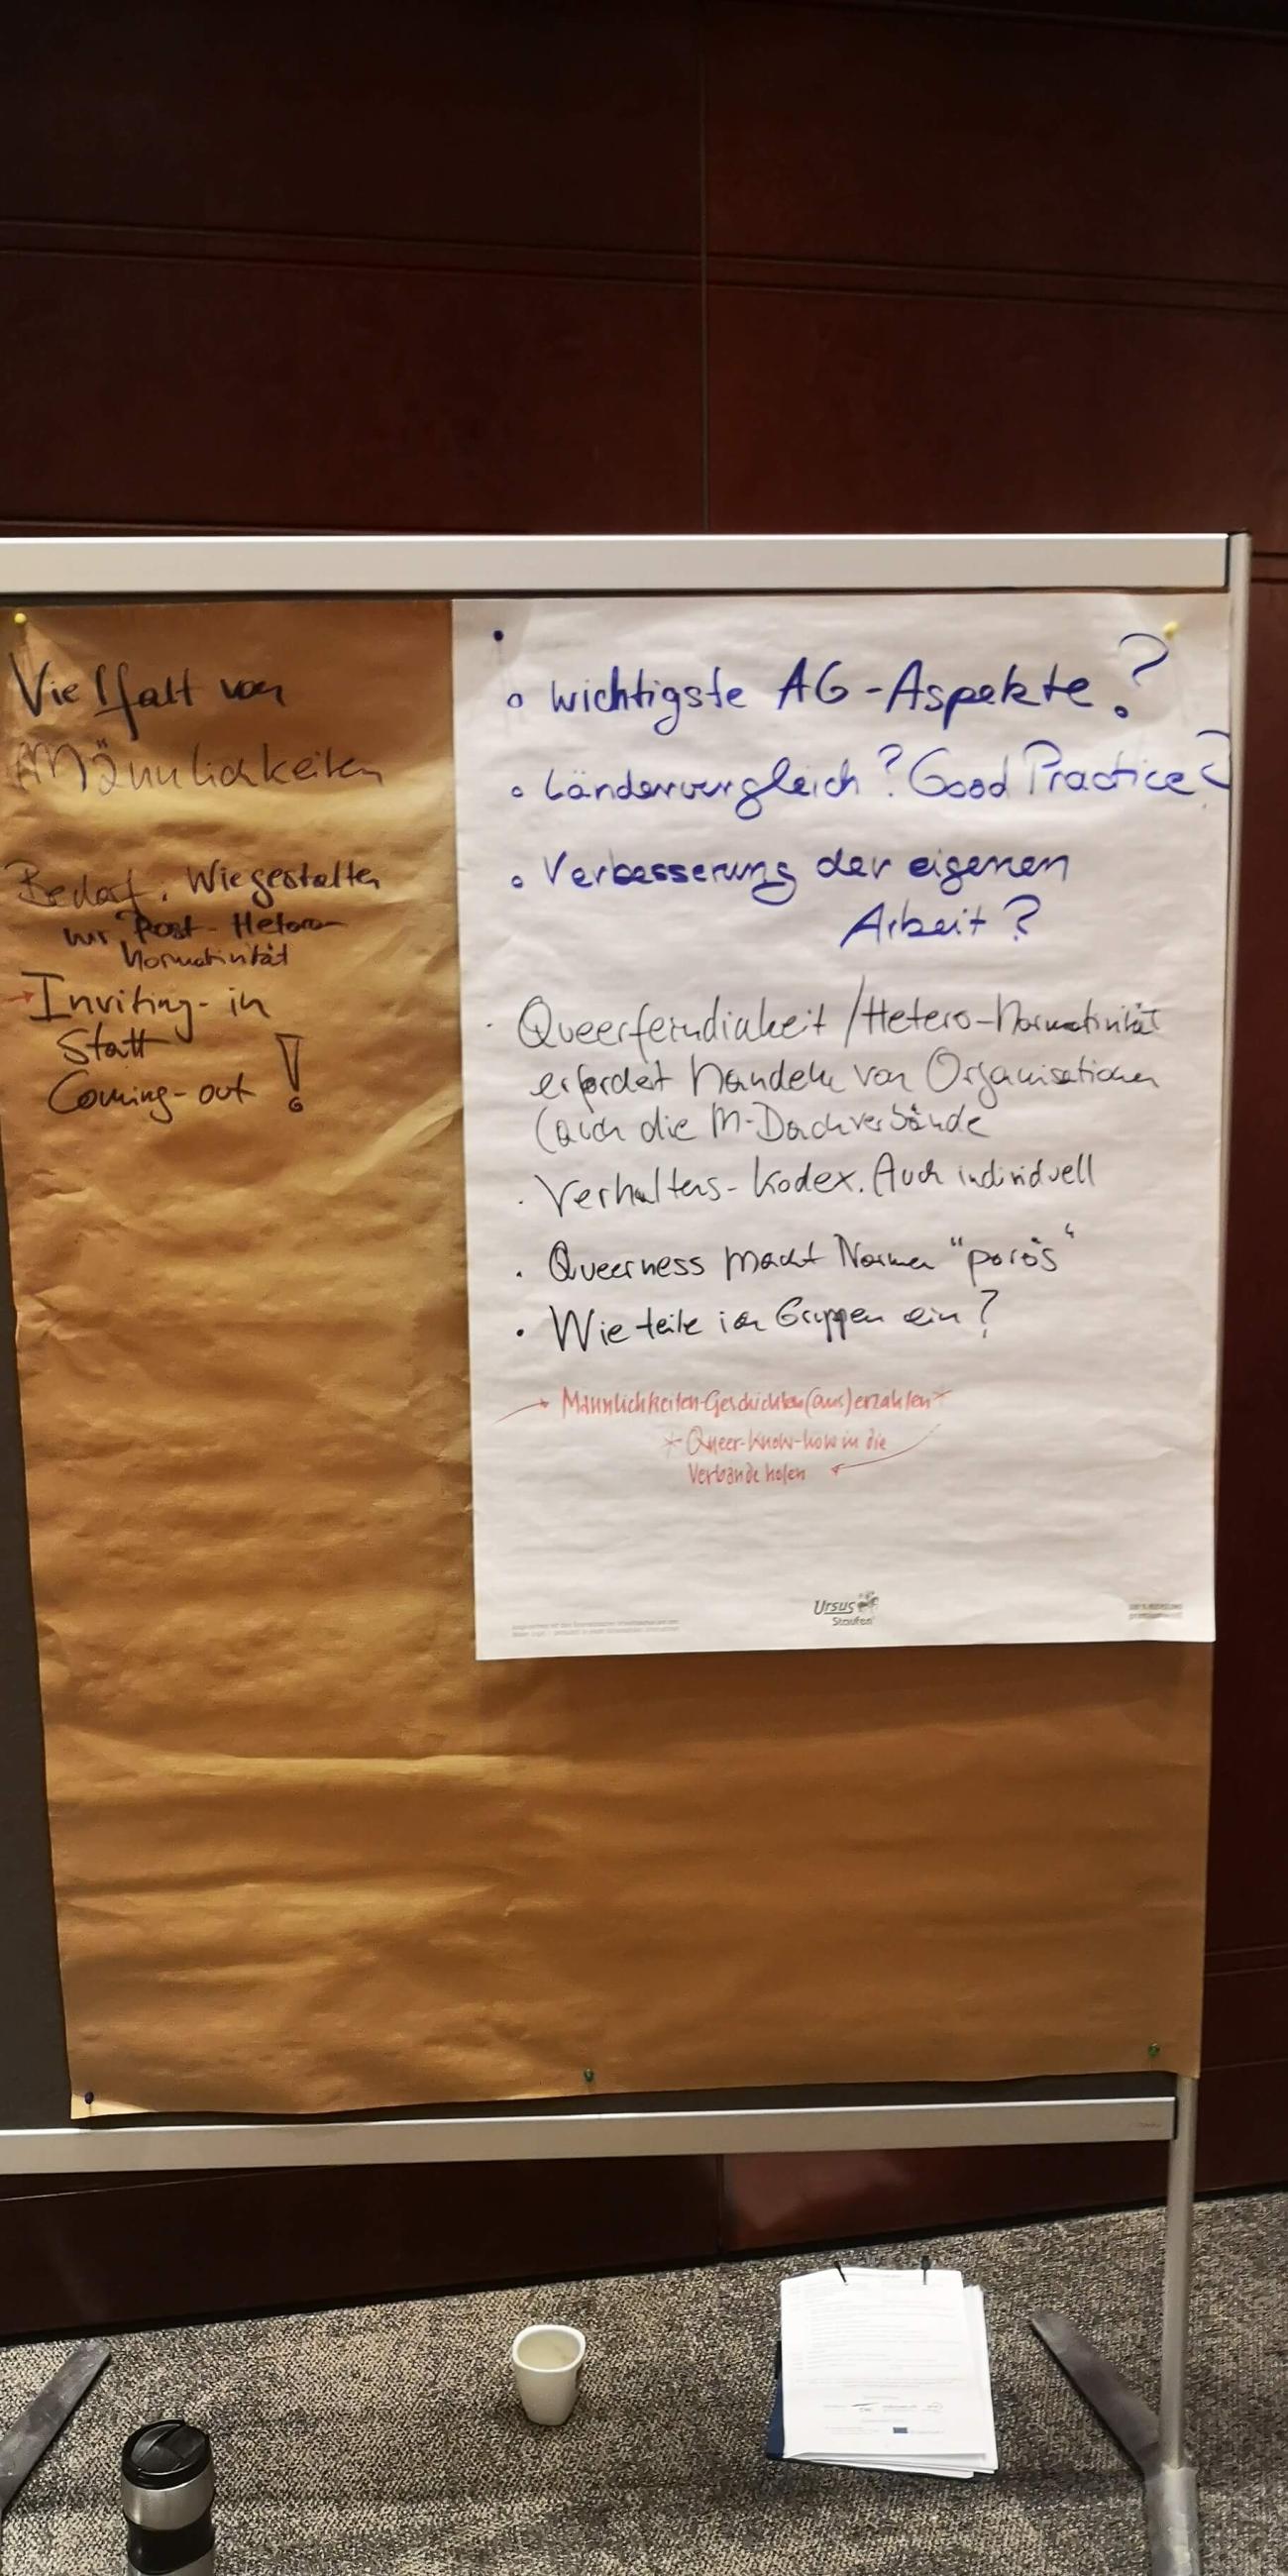 Vielfalt von
Männlichkeiten
Bedarf. Wie gestalten
wir Post-Hetero-
Normativität
→ Inviting-in
Statt
Coming-out !
• wichtigste AG-Aspekte?
• Ländervergleich? Good Practice?
• Verbesserung der eigenen
Arbeit?
· Queerfeindlichkeit / Hetero-Normativität
erfordert handeln von Organisationen
(auch die M-Dachverbände
· Verhaltens-Kodex. Auch individuell
· Queerness macht Normen "porös"
· Wie teile ich Gruppen ein?
→ Männlichkeiten-Geschichten (aus) erzählen*
* Queer-Know-how in die
Verbände holen
Ursus
Staufen